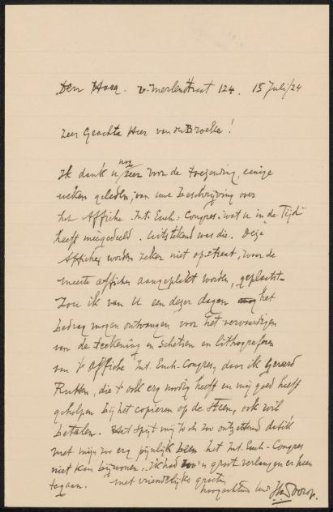 Den Haag. v. Merlenstraat 124. 15 Juli/24
Zeer Geachte Heer van den Broecke!
Ik dank u nog zeer voor de toezending, eenige
weken geleden, van uwe beschrijving over
het Affiche Int. Euch. Congres. wat u in de Tijd
heeft meegedeeld. Uitstekend was die. Deze
Affiches worden zeker niet op straat, waar de
meeste affiches aangeplakt worden, geplaatst.
Zou ik van U een dezer dagen het
bedrag mogen ontvangen voor het vervaardigen
van de teekening schetsen en lithografeeren
van 't affiche Int. Euch-Congres, daar ik Gerard
Rutten, die 't ook erg noodig heeft en mij goed heeft
geholpen bij het copieren op de steen, ook wil
betalen. spijt mij toch zoo ontzettend dat ik
met mijn zoo erg pijnlijk been het Int. Euch-Congres
niet kan bijwonen. ik had zoo'n groot verlangen er heen
te gaan. met vriendelijke groeten
hoogachtend uw Jan Toorop.